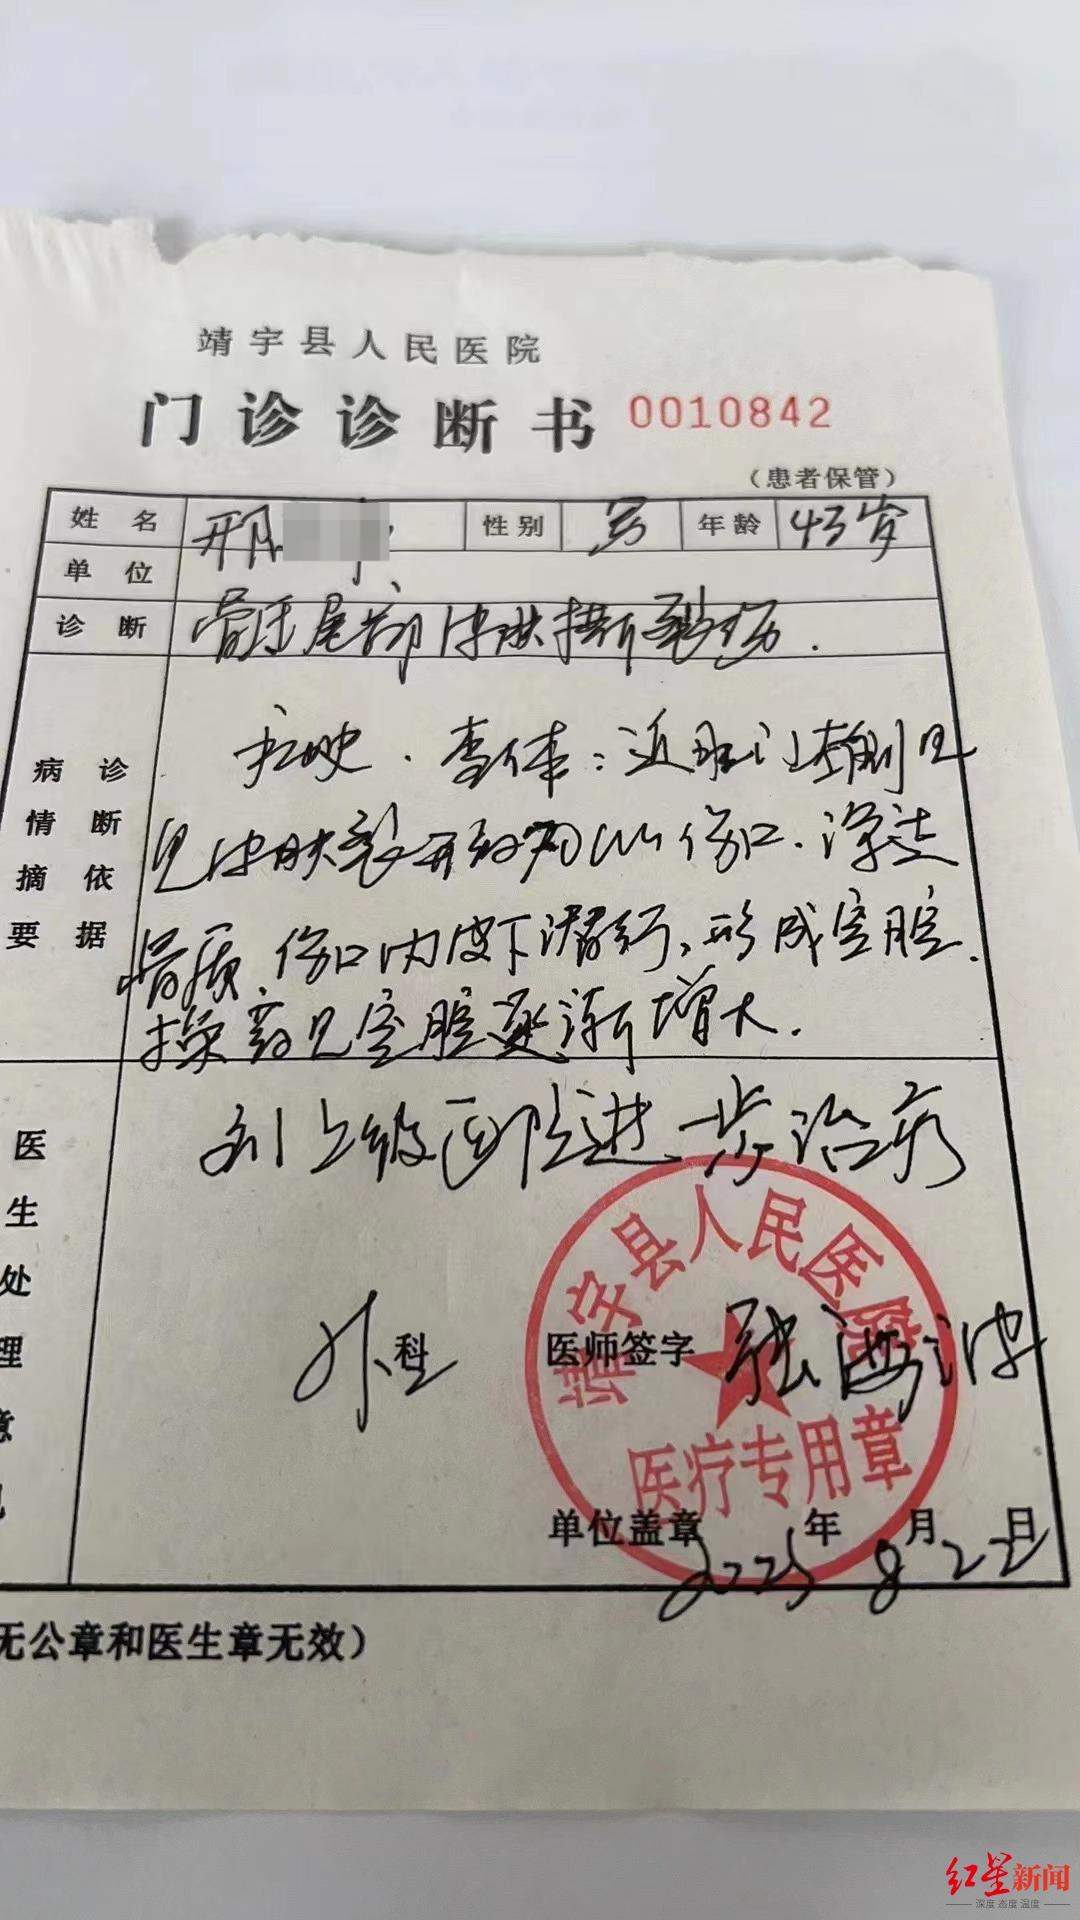 靖宇县人民医院
门诊诊断书 0010842
（患者保管）
姓名 邢 性别 男 年龄 43岁
单位
诊断 骶尾部皮肤撕裂伤.
病情摘要 诊断依据
外伤史. 查体：近肛门左侧
见皮肤裂开约 伤口. 深达
骨质. 伤口内皮下潜行, 形成空腔.
换药见空腔逐渐增大.
医生处理意见
到上级医院进一步治疗
外科 医师签字 张海波
靖宇县人民医院
医疗专用章
单位盖章 2025年8月22日
无公章和医生章无效）
红星新闻
深度 态度 温度